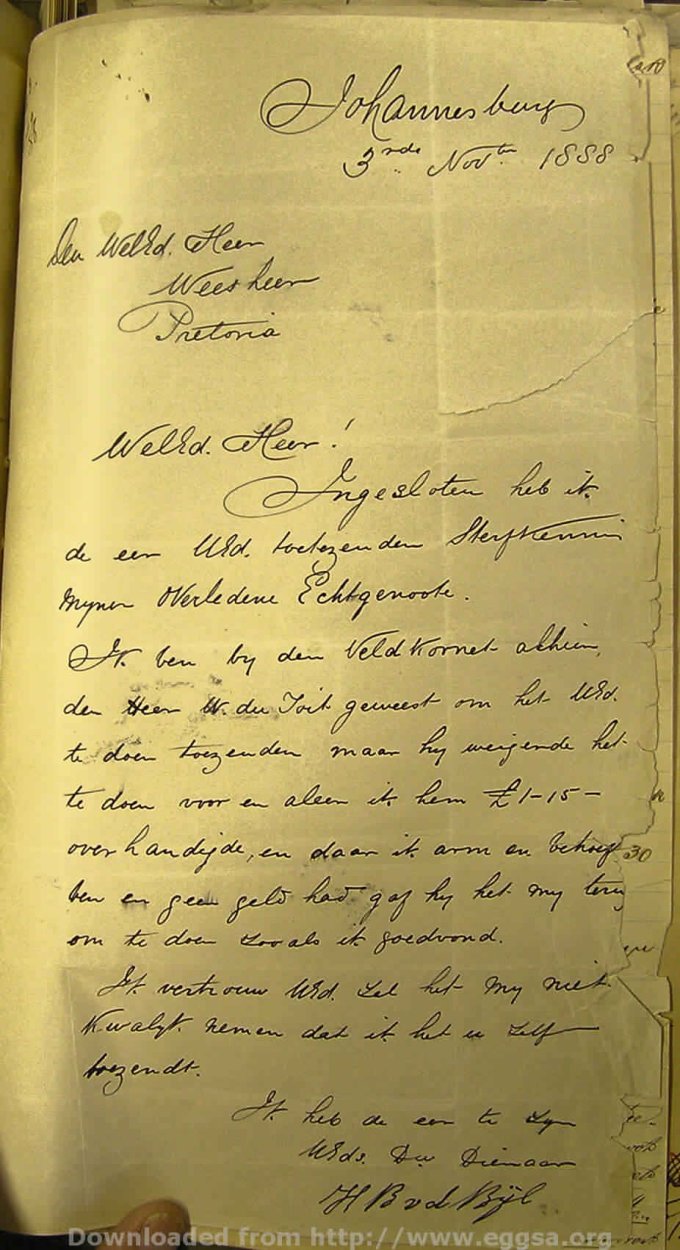 Johannesburg
3rde Novbr 1888
Den WelEd. Heer
Weesheer
Pretoria
WelEd. Heer!
Ingesloten heb ik
de eer UEd. toetezenden Sterfkennis
myner Overledene Echtgenoote.
Ik ben by den Veldkornet alhier,
den Heer W. du Toit geweest om het UEd.
te doen toezenden maar hy weigerde het
te doen voor en aleer ik hem £1-15-
overhandigde, en daar ik arm en behoeft
ben en geen geld had gaf hy het my terug
om te doen zooals ik goedvond.
Ik vertrouw UEd. zal het my niet
Kwalyk nemen dat ik het u zelf
toezendt.
Ik heb de eer te zyn
UEds. Dw Dienaar
H B v d Bÿl
30
Downloaded from http://www.eggsa.org